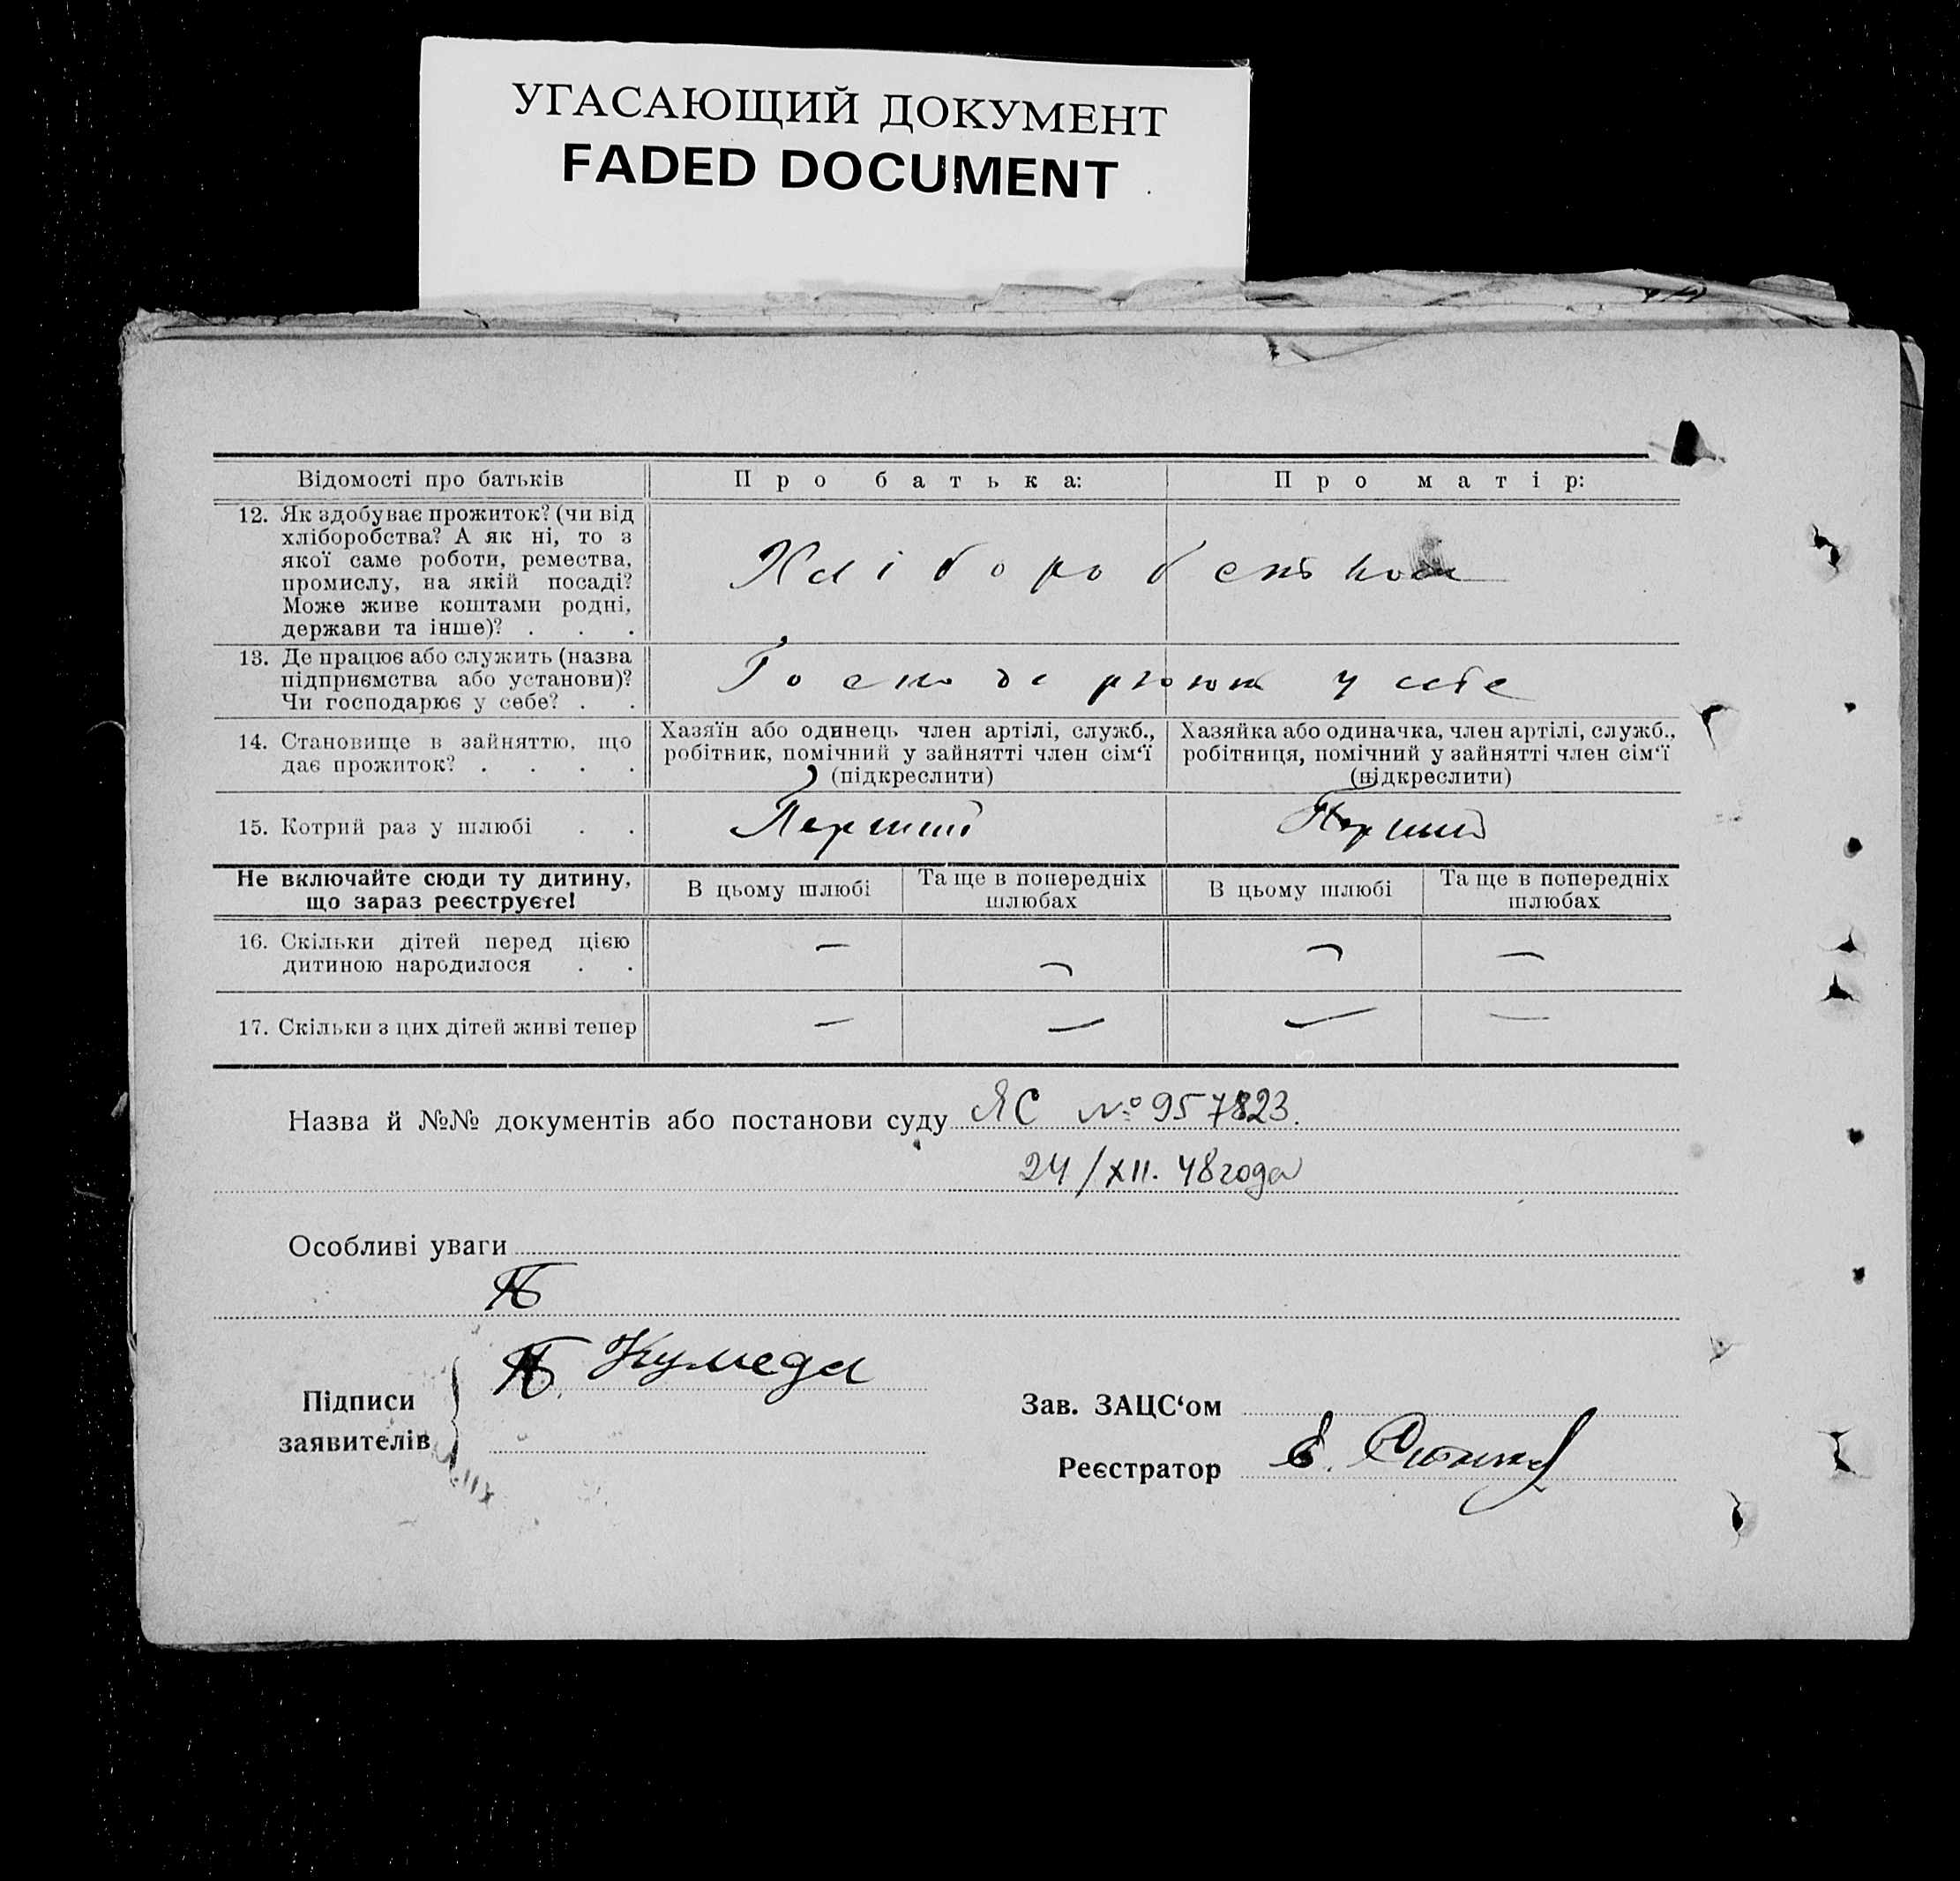 УГАСАЮЩИЙ ДОКУМЕНТ
FADED DOCUMENT
Відомості про батьків
Про батька:
Про матір:
12. Як здобуває прожиток? (чи від
хліборобства? А як ні, то з
якої саме роботи, ремества,
промислу, на якій посаді?
Може живе коштами родні,
держави та інше)? . . .
Хліборобством
13. Де працює або служить (назва
підприємства або установи)?
Чи господарює у себе? . .
Господарюють у себе
14. Становище в зайняттю, що
дає прожиток? . . . .
Хазяїн або одинець член артілі, служб.,
робітник, помічний у зайнятті член сім‘ї
(підкреслити)
Хазяйка або одиначка, член артілі, служб.,
робітниця, помічний у зайнятті член сім‘ї
(підкреслити)
15. Котрий раз у шлюбі . .
Перший
Перший
Не включайте сюди ту дитину,
що зараз реєструєте!
В цьому шлюбі
Та ще в попередніх
шлюбах
В цьому шлюбі
Та ще в попередніх
шлюбах
16. Скільки дітей перед цією
дитиною народилося . .
— — — —
17. Скільки з цих дітей живі тепер
— — — —
Назва й №№ документів або постанови суду ЯС № 957823.
24/XII. 48 года
Особливі уваги
Підписи
заявителів
Кумеда
Зав. ЗАЦС‘ом
Реєстратор